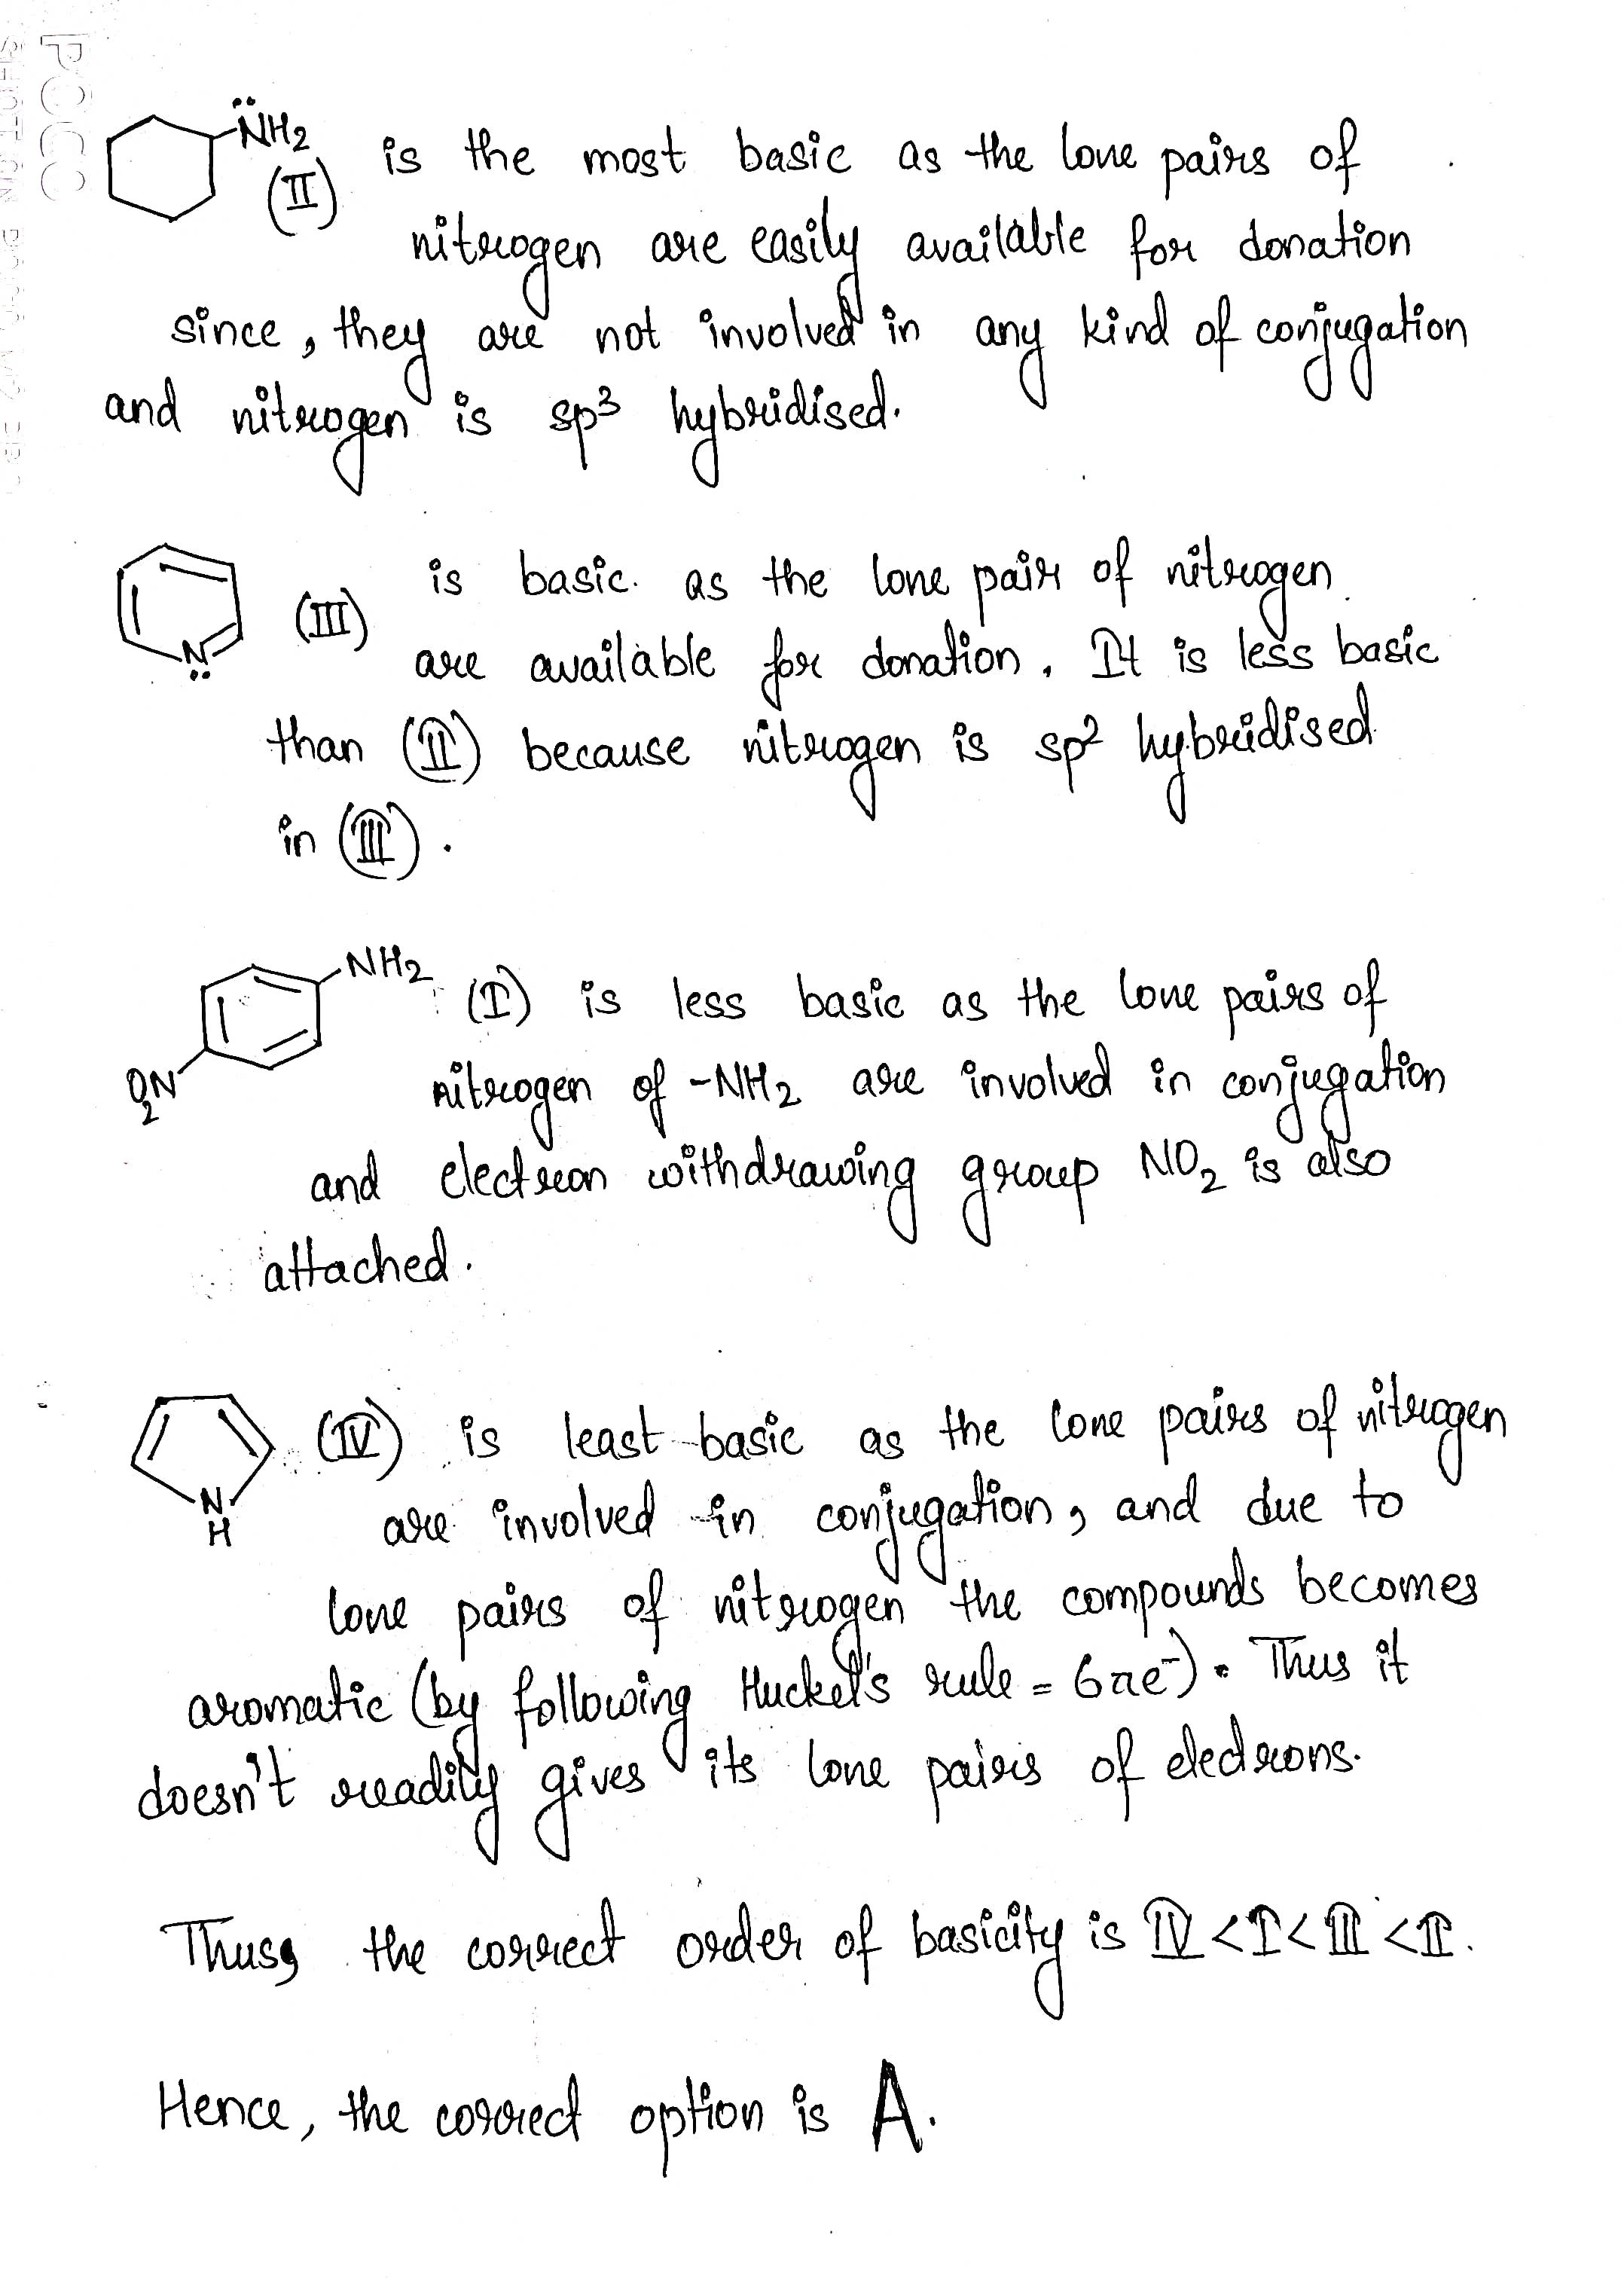 N̈H₂
(II)
is the most basic as the lone pairs of
nitrogen are easily available for donation
since, they are not involved in any kind of conjugation
and nitrogen is sp³ hybridised.
N
(III)
is basic. as the lone pair of nitrogen
are available for donation. It is less basic
than (II) because nitrogen is sp² hybridised
in (III).
NH₂
O₂N
(I) is less basic as the lone pairs of
nitrogen of -NH₂ are involved in conjugation
and electron withdrawing group NO₂ is also
attached.
N
H
(IV) is least basic as the lone pairs of nitrogen
are involved in conjugation, and due to
lone pairs of nitrogen the compounds becomes
aromatic (by following Huckel's rule = 6πe⁻). Thus it
doesn't readily gives its lone pairs of electrons.
Thus, the correct order of basicity is IV < I < III < II.
Hence, the correct option is A.
POCO